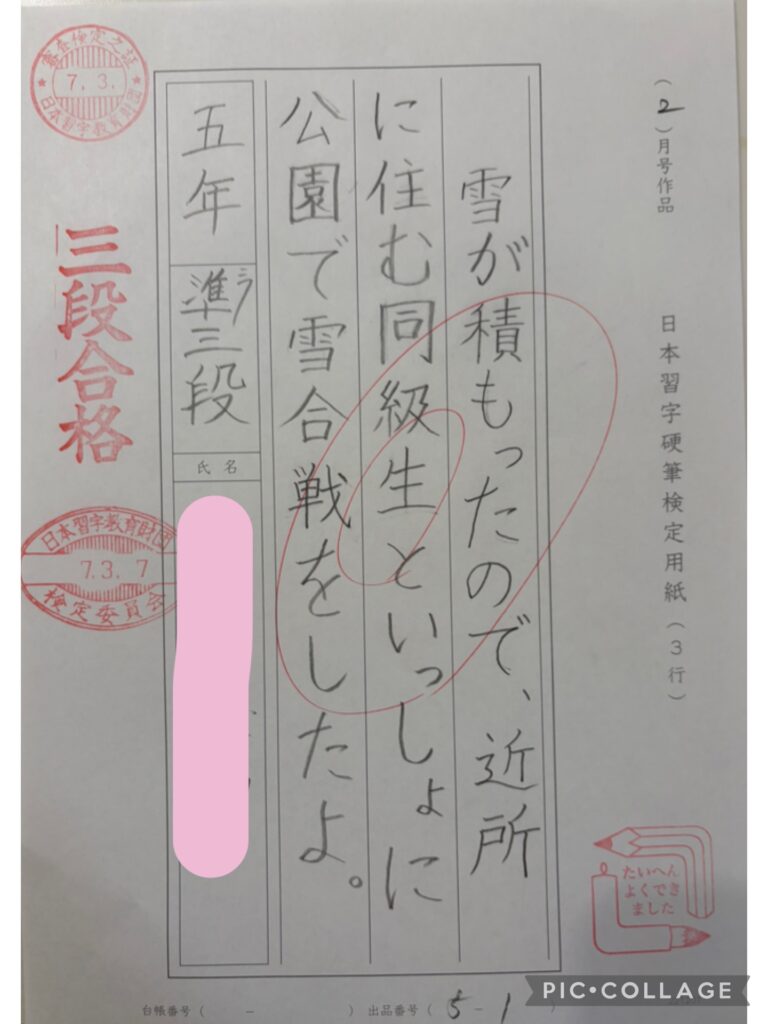 (2)月号作品
日本習字硬筆検定用紙(3行)
雪が積もったので、近所
に住む同級生といっしょに
公園で雪合戦をしたよ。
五年
準三段
氏名
審査検定之証
7.3.
日本習字教育財団
三段合格
日本習字教育財団
7.3.7
検定委員会
たいへん
よくでき
ました
台帳番号( - ) 出品番号(5-1
PIC•COLLAGE